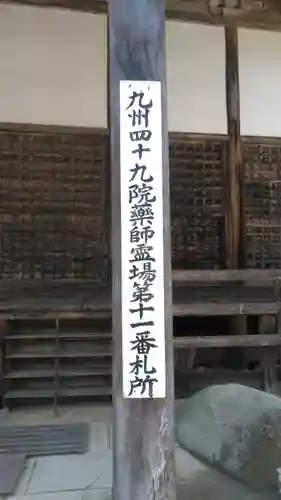 九州四十九院藥師霊場第十一番札所